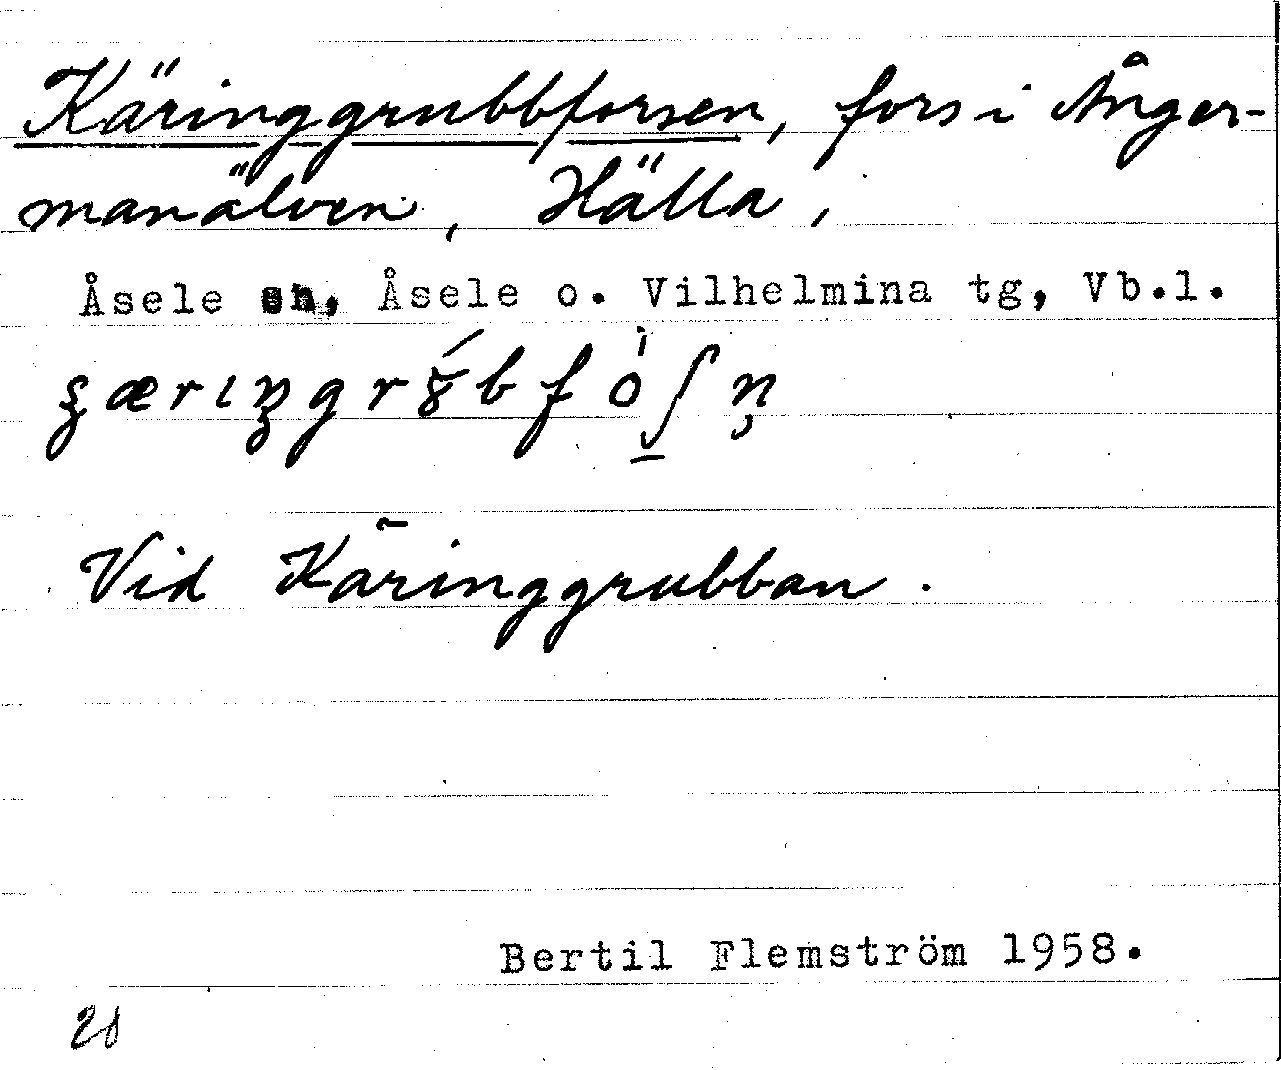 Käringgrubbforsen, fors i Ånger-
manälven, Hälla,
Åsele sn, Åsele o. Vilhelmina tg, Vb.l.
Vid Käringgrubban.
Bertil Flemström 1958.